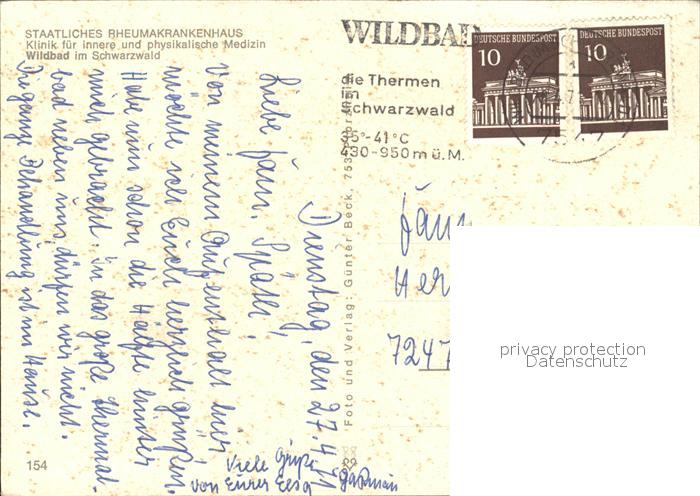 STAATLICHES RHEUMAKRANKENHAUS
Klinik für innere und physikalische Medizin
Wildbad im Schwarzwald
WILDBAD
die Thermen
im
Schwarzwald
35°-41°C
430-950 m ü. M.
DEUTSCHE BUNDESPOST
10
DEUTSCHE BUNDESPOST
10
Dienstag, den 27.4.71
Liebe Fam. Späth!
Von meinem Aufenthalt hier,
möchte ich Euch herzlich grüßen.
Habe nun schon die Hälfte hinter
mich gebracht. In das große Thermal-
bad neben uns, dürfen wir nicht.
Die ganze Behandlung ist im Hause.
Viele Grüße
von Eurer Elsa
Foto und Verlag: Günter Beck, 753
Fam
Her
7247
privacy protection
Datenschutz
154